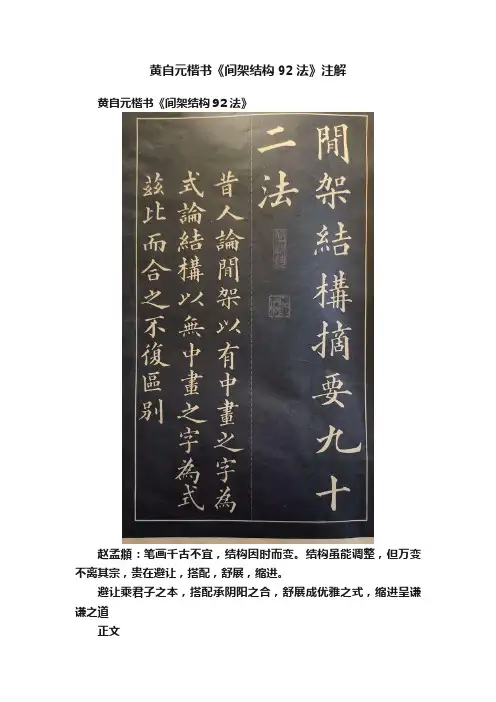 黄自元楷书《间架结构92法》注解
黄自元楷书《间架结构92法》
間架結構摘要九十
二法
昔人論間架以有中畫之字為
式論結構以無中畫之字為式
茲比而合之不復區别
赵孟頫：笔画千古不宜，结构因时而变。结构虽能调整，但万变
不离其宗，贵在避让，搭配，舒展，缩进。
避让乘君子之本，搭配承阴阳之合，舒展成优雅之式，缩进呈谦
谦之道
正文